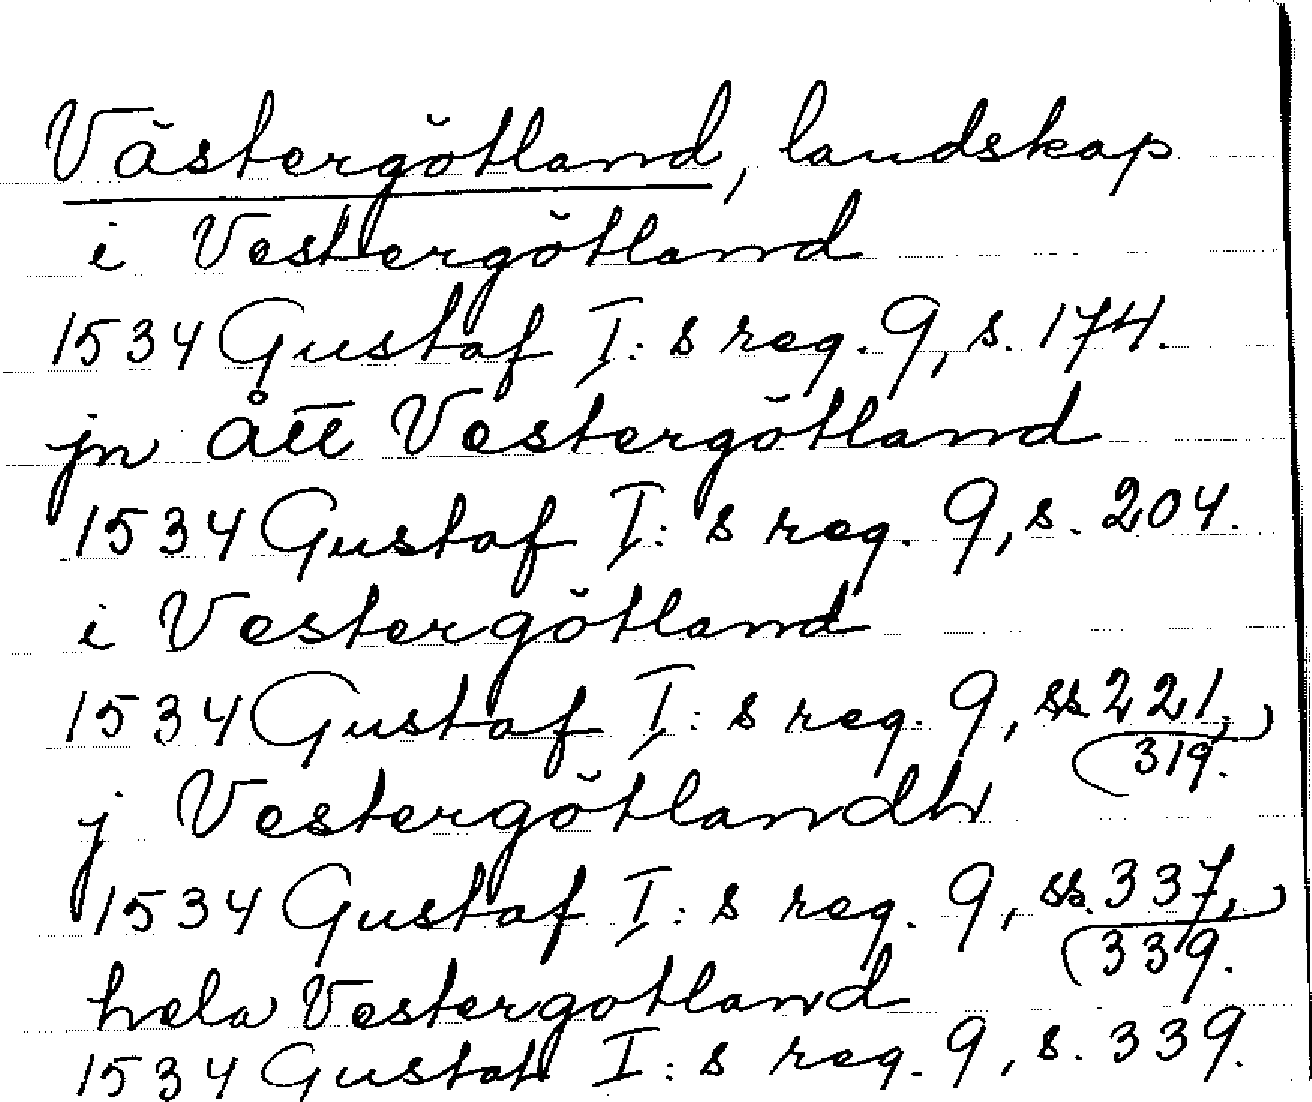 Västergötland, landskap
i Vestergötland
1534 Gustaf I: s reg. 9, s. 174.
jn ått Vestergötland
1534 Gustaf I: s reg. 9, s. 204.
i Vestergötland
1534 Gustaf I: s reg. 9, ss. 221,
319.
j Vestergötlandh
1534 Gustaf I: s reg. 9, ss. 337,
339.
hela Vestergotland
1534 Gustaf I: s reg. 9, s. 339.